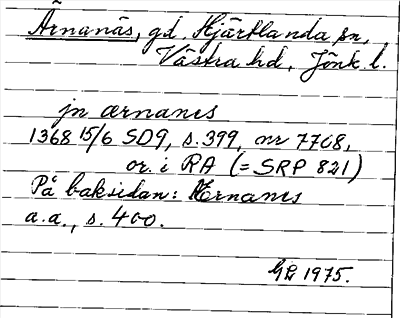 Ärnanäs, gd, Hjärtlanda sn,
Västra hd, Jönk. l.
jn ærnanes
1368 15/6 SD9, s. 399, nr 7768,
or. i RA (=SRP 821)
På baksidan: Ærnanes
a.a., s. 400.
1975.